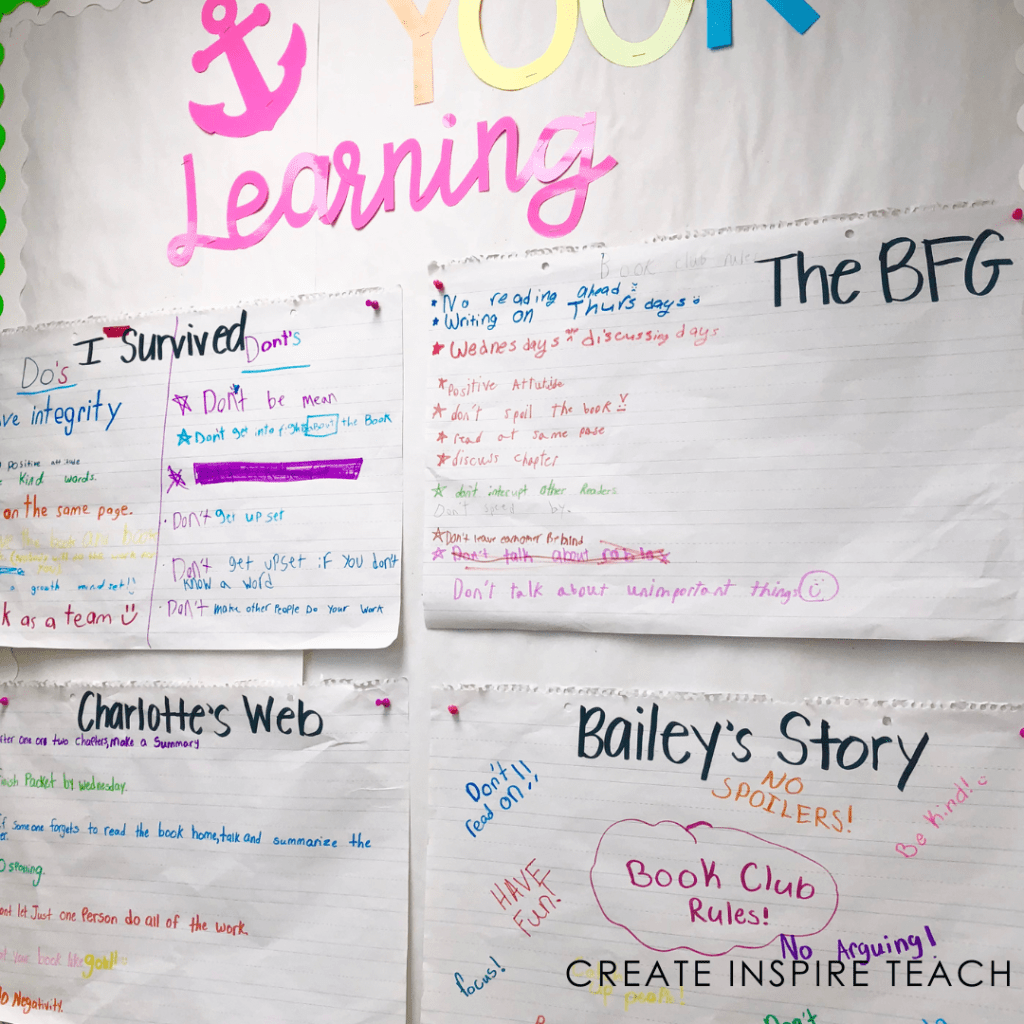 YOUR
Learning
I Survived
Do's
integrity
positive attitude
kind words.
on the same page.
growth mind set!!
as a team
Dont's
Don't be mean
Don't get into fights about the Book
Don't get upset
Don't get upset if You don't
know a word
Don't make other People Do Your Work
The BFG
Book club rules
No reading ahead
Writing on Thursdays
Wednesdays discussing days
Positive Attitude
don't spoil the book
read at same pase
discuss chapter
don't interupt other Readers
Don't speed by.
Don't leave Behind
Don't talk about
Don't talk about unimportant things
Charlotte's Web
one or two chapters, make a Summary
Packet by Wednesday.
if someone forgets to read the book home, talk and summarize the
let Just one Person do all of the work.
your book like gold!
No Negativity.
Bailey's Story
Don't
read on!!
NO
SPOILERS!
Be Kind!
HAVE
Fun!
Book Club
Rules!
No Arguing!
focus!
CREATE INSPIRE TEACH
Don't